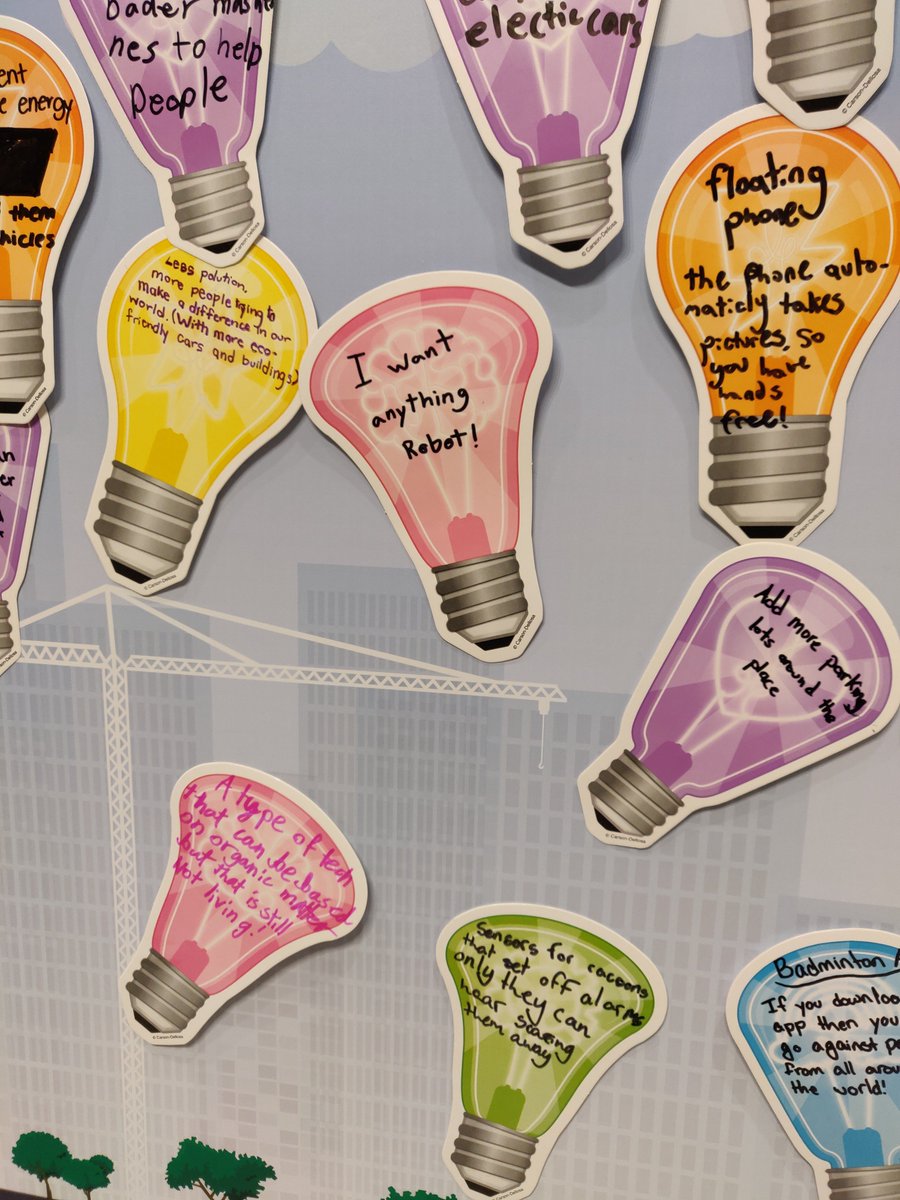 nes to help
people
electiccars
energy
them
floating
phone
the phone auto-
maticly takes
pictures. So
you have
hands
free!
Less polution.
more people trying to
make a difference in our
world. (With more eco-
friendly cars and buildings)
I want
anything
Robot!
Add more parking
lots around the
place
A type of tech
that can be based
on organic matter
but that is still
Not living!
Sensors for racoons
that set off alarms
only they can
hear scaring
them away
Badminton
If you
app then you
go against
from all
the world!
© Carson-Dellosa
© Carson-Dellosa
© Carson-Dellosa
© Carson-Dellosa
© Carson-Dellosa
© Carson-Dellosa
© Carson-Dellosa
© Carson-Dellosa
© Carson-Dellosa